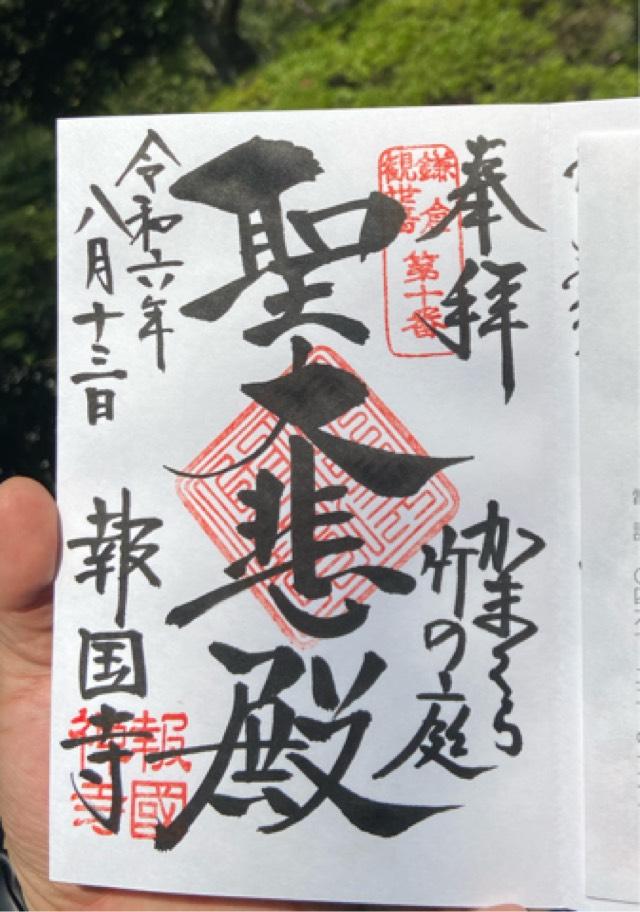 奉拝
鎌倉
観世音
第十番
かまくら
竹の庭
聖大悲殿
令和六年
八月十三日
報国寺
報國
禅寺